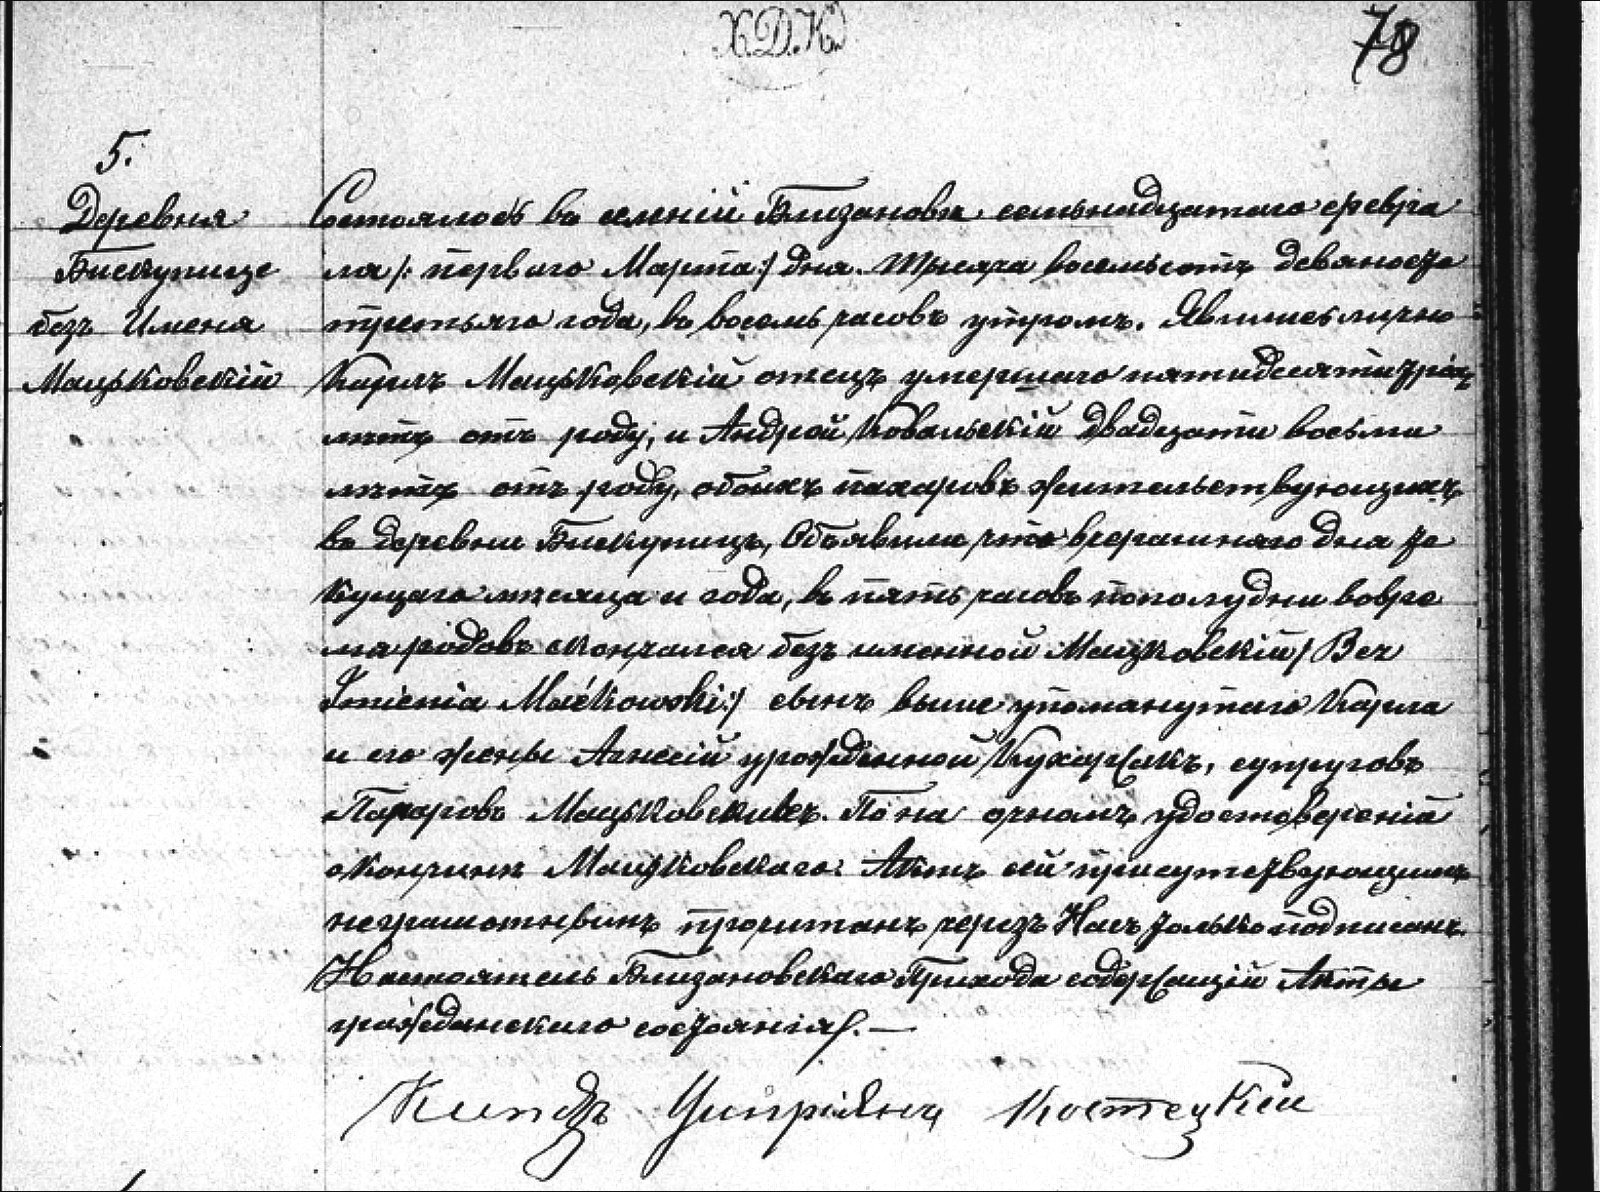 Х.Д.К.
78
5.
Деревня
Бискупице
безъ Имена
Мацьковскій
Состоялось въ селеніи Близановѣ семьнадцатаго февра
ля /: перваго Марта :/ дня. тысяча восемьсотъ девяносто
третьяго года, въ восемь часовъ утромъ. Явились лично
Карлъ Мацьковскій отецъ умершаго пятидесяти трехъ
лѣтъ отъ роду, и Андрей Ковальскій двадцати восьми
лѣтъ отъ роду, обоихъ пахаровъ жительствующихъ
въ деревни Бискупицъ, Объявили что вчерашняго дня те
кущаго мѣсяца и года, въ пять часовъ пополудни вовре
мя родовъ скончался безъ именной Мацьковскій / Bez
Imienia Maćkowski :/ сынъ выше упоманутаго Карла
и его жены Агнесіи урожденной Кухарскъ, супруговъ
Пахаровъ Мацьковскихъ. По на очномъ удостоверенія
окончинѣ Мацьковскаго. Актъ сей присутствующимъ
неграмотнымъ прочитанъ черезъ Насъ только подписанъ.
Настоятель Близановскаго Прихода содержащій Акты
гражданскаго состоянія. —
Ксендзъ Ципріянъ Костецкій